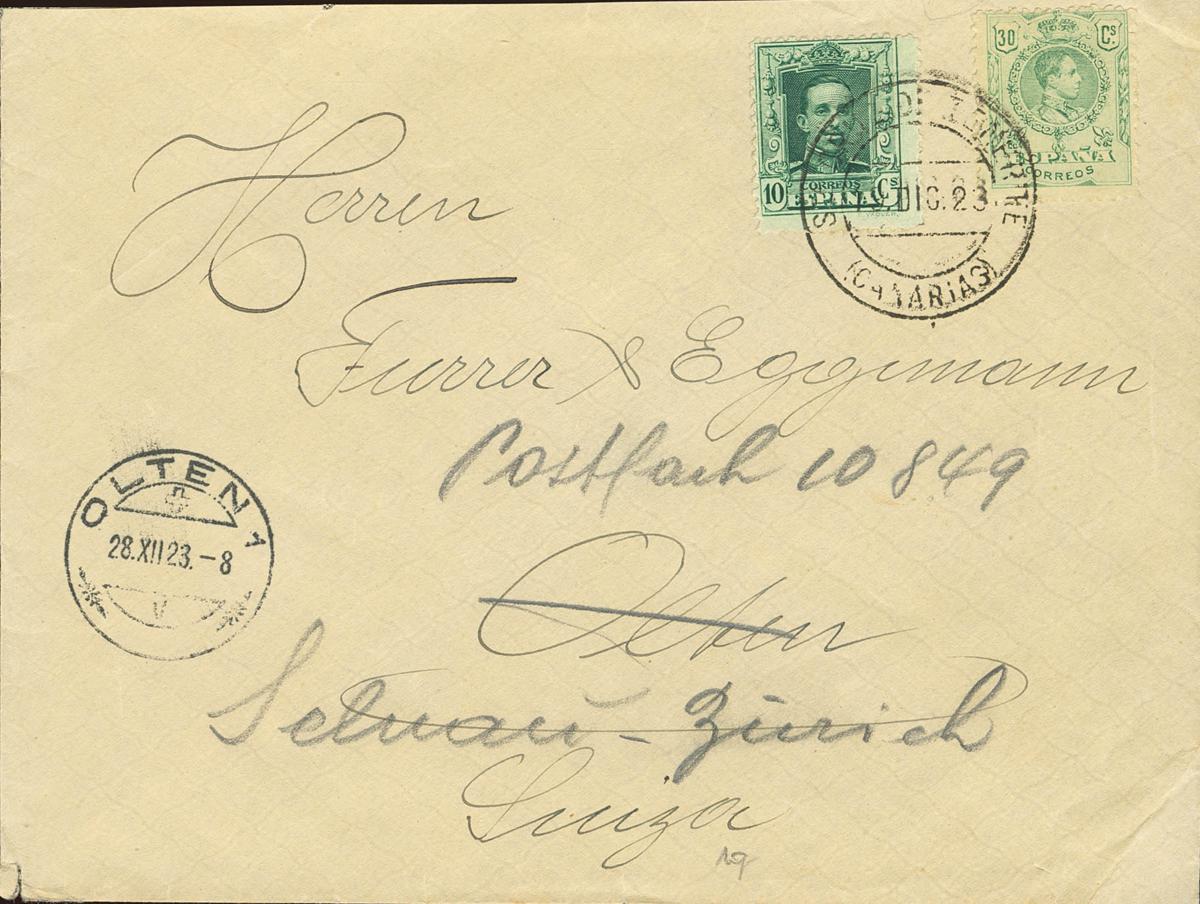 30 Cs
ESPAÑA
CORREOS
10 Cs
CORREOS
ESPAÑA
DE TENERIFE
DIC. 23.
(CANARIAS)
Herren
Furrer & Eggimann
Postfach 10849
OLTEN 1
28.XII 23. – 8
V
Olten
Selnau – Zürich
Suiza